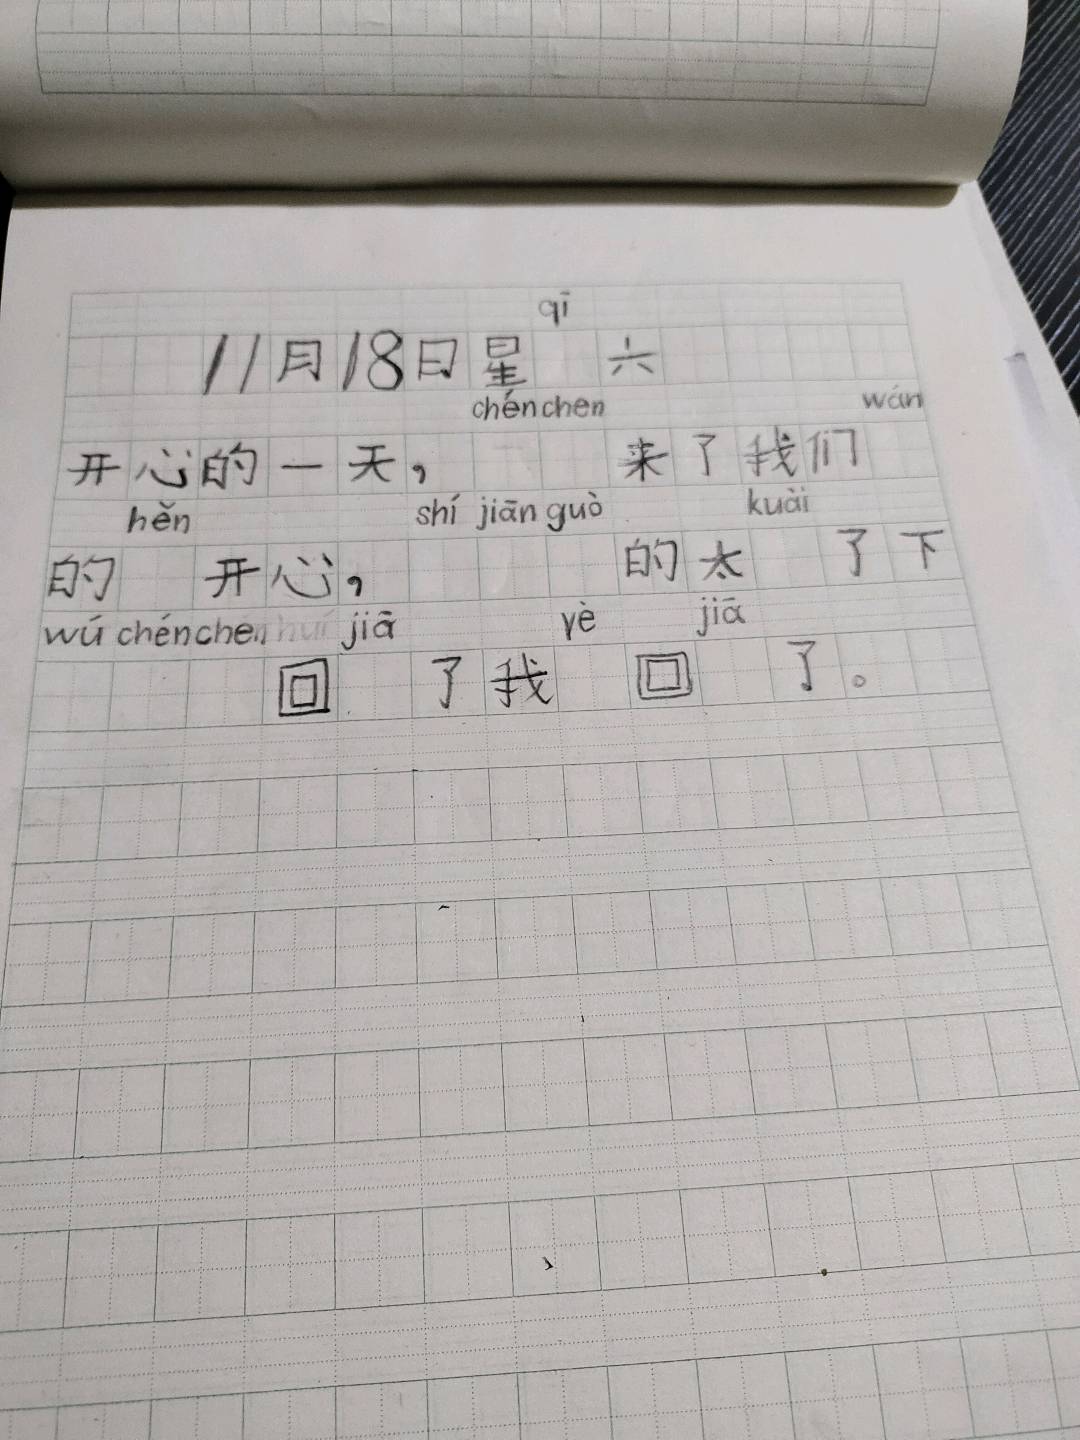 qī
11月18日星 六
chénchen wán
开心的一天， 来了我们
hěn shí jiān guò kuài
的 开心， 的太 了下
wú chénchen huí jiā yè jiā
回 了我 回 了。